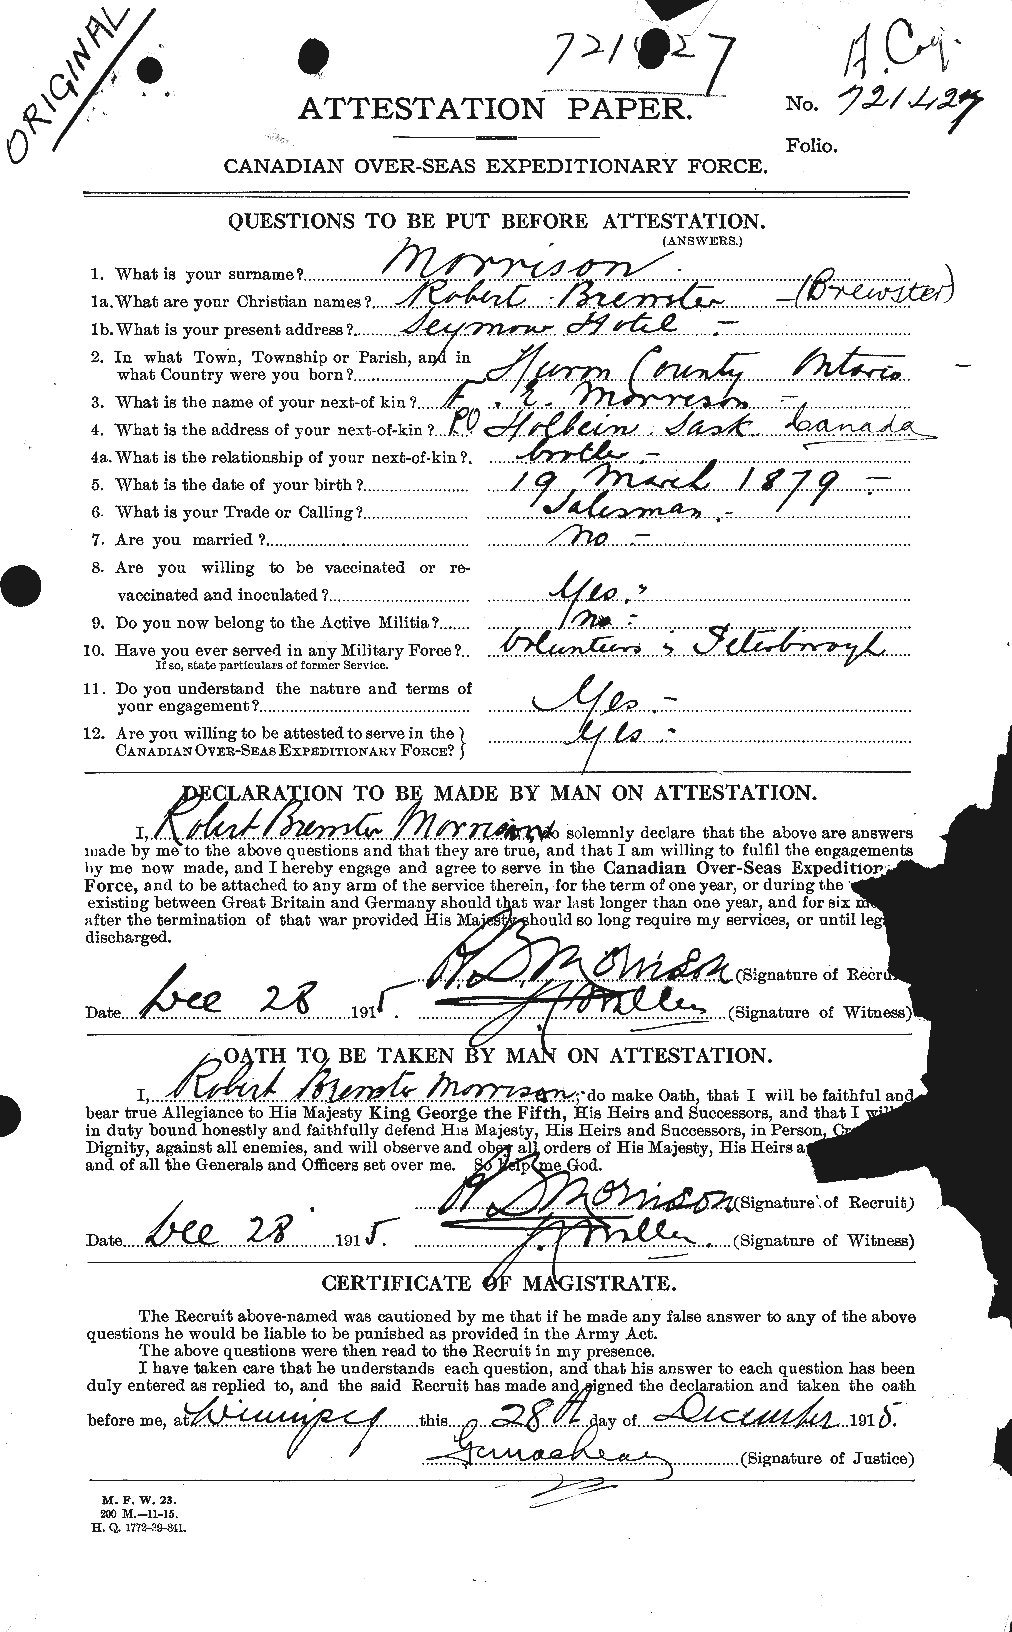 ORIGINAL
721427
A. Coy.
ATTESTATION PAPER.
No. 721427
Folio.
CANADIAN OVER-SEAS EXPEDITIONARY FORCE.
QUESTIONS TO BE PUT BEFORE ATTESTATION.
(ANSWERS.)
1. What is your surname? Morrison.
1a. What are your Christian names? Robert Brewster - (Brewster)
1b. What is your present address? Seymour Hotel -
2. In what Town, Township or Parish, and in
what Country were you born? Huron County Ontario -
3. What is the name of your next-of kin? F. E. Morrison -
4. What is the address of your next-of-kin? PO Holbein Sask. Canada
4a. What is the relationship of your next-of-kin? brother -
5. What is the date of your birth? 19 March 1879 -
6. What is your Trade or Calling? Salesman -
7. Are you married? No -
8. Are you willing to be vaccinated or re-
vaccinated and inoculated? Yes.
9. Do you now belong to the Active Militia? No -
10. Have you ever served in any Military Force? Volunteers Peterborough
If so, state particulars of former Service.
11. Do you understand the nature and terms of
your engagement? Yes -
12. Are you willing to be attested to serve in the
CANADIAN OVER-SEAS EXPEDITIONARY FORCE? } Yes -
DECLARATION TO BE MADE BY MAN ON ATTESTATION.
I, Robert Brewster Morrison, do solemnly declare that the above are answers
made by me to the above questions and that they are true, and that I am willing to fulfil the engagements
by me now made, and I hereby engage and agree to serve in the Canadian Over-Seas Expedition
Force, and to be attached to any arm of the service therein, for the term of one year, or during the
existing between Great Britain and Germany should that war last longer than one year, and for six m
after the termination of that war provided His Majesty should so long require my services, or until leg
discharged.
R B Morrison (Signature of Recru
Date Dec 28 1915. (Signature of Witness)
OATH TO BE TAKEN BY MAN ON ATTESTATION.
I, Robert Brewster Morrison, do make Oath, that I will be faithful and
bear true Allegiance to His Majesty King George the Fifth, His Heirs and Successors, and that I will
in duty bound honestly and faithfully defend His Majesty, His Heirs and Successors, in Person, Cr
Dignity, against all enemies, and will observe and obey all orders of His Majesty, His Heirs a
and of all the Generals and Officers set over me. So help me God.
R B Morrison (Signature of Recruit)
Date Dec 28 1915. (Signature of Witness)
CERTIFICATE OF MAGISTRATE.
The Recruit above-named was cautioned by me that if he made any false answer to any of the above
questions he would be liable to be punished as provided in the Army Act.
The above questions were then read to the Recruit in my presence.
I have taken care that he understands each question, and that his answer to each question has been
duly entered as replied to, and the said Recruit has made and signed the declaration and taken the oath
before me, at Winnipeg this 28th day of December 1915.
(Signature of Justice)
M. F. W. 23.
200 M.-11-15.
H. Q. 1772-39-841.